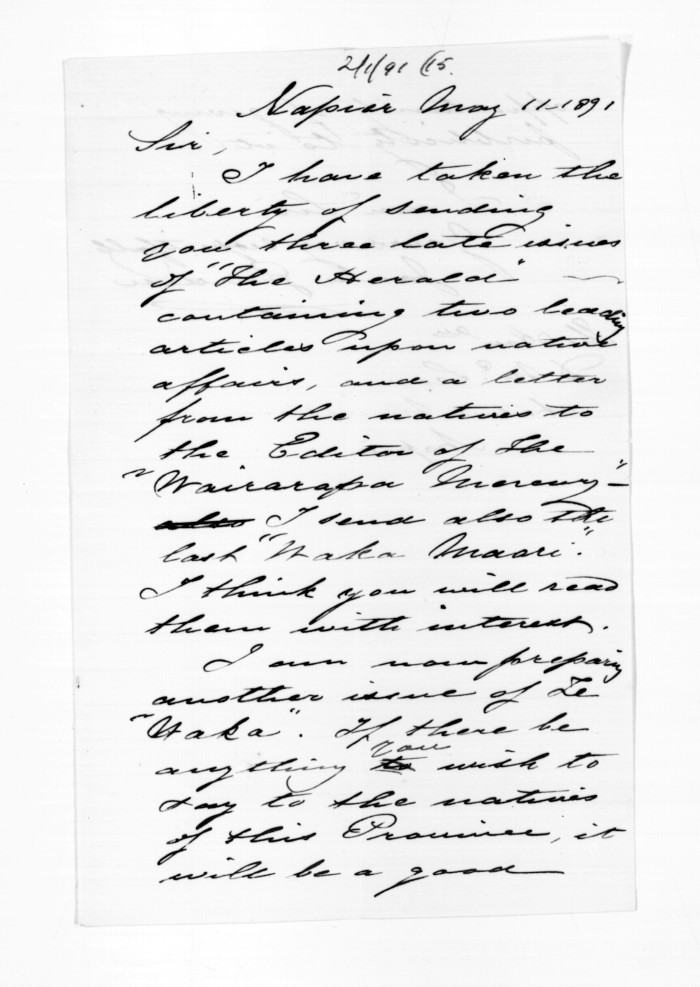 2/1/91 (15.
Napier May 11-1891
Sir,
I have taken the
liberty of sending
you three late issues
of "The Herald"
containing two leading
articles upon native
affairs, and a letter
from the natives to
the Editor of the
"Wairarapa Mercury" -
also I send also the
last "Waka Maori".
I think you will read
them with interest.
I am now preparing
another issue of Te
"Waka". If there be
anything you wish to
say to the natives
of this Province, it
will be a good